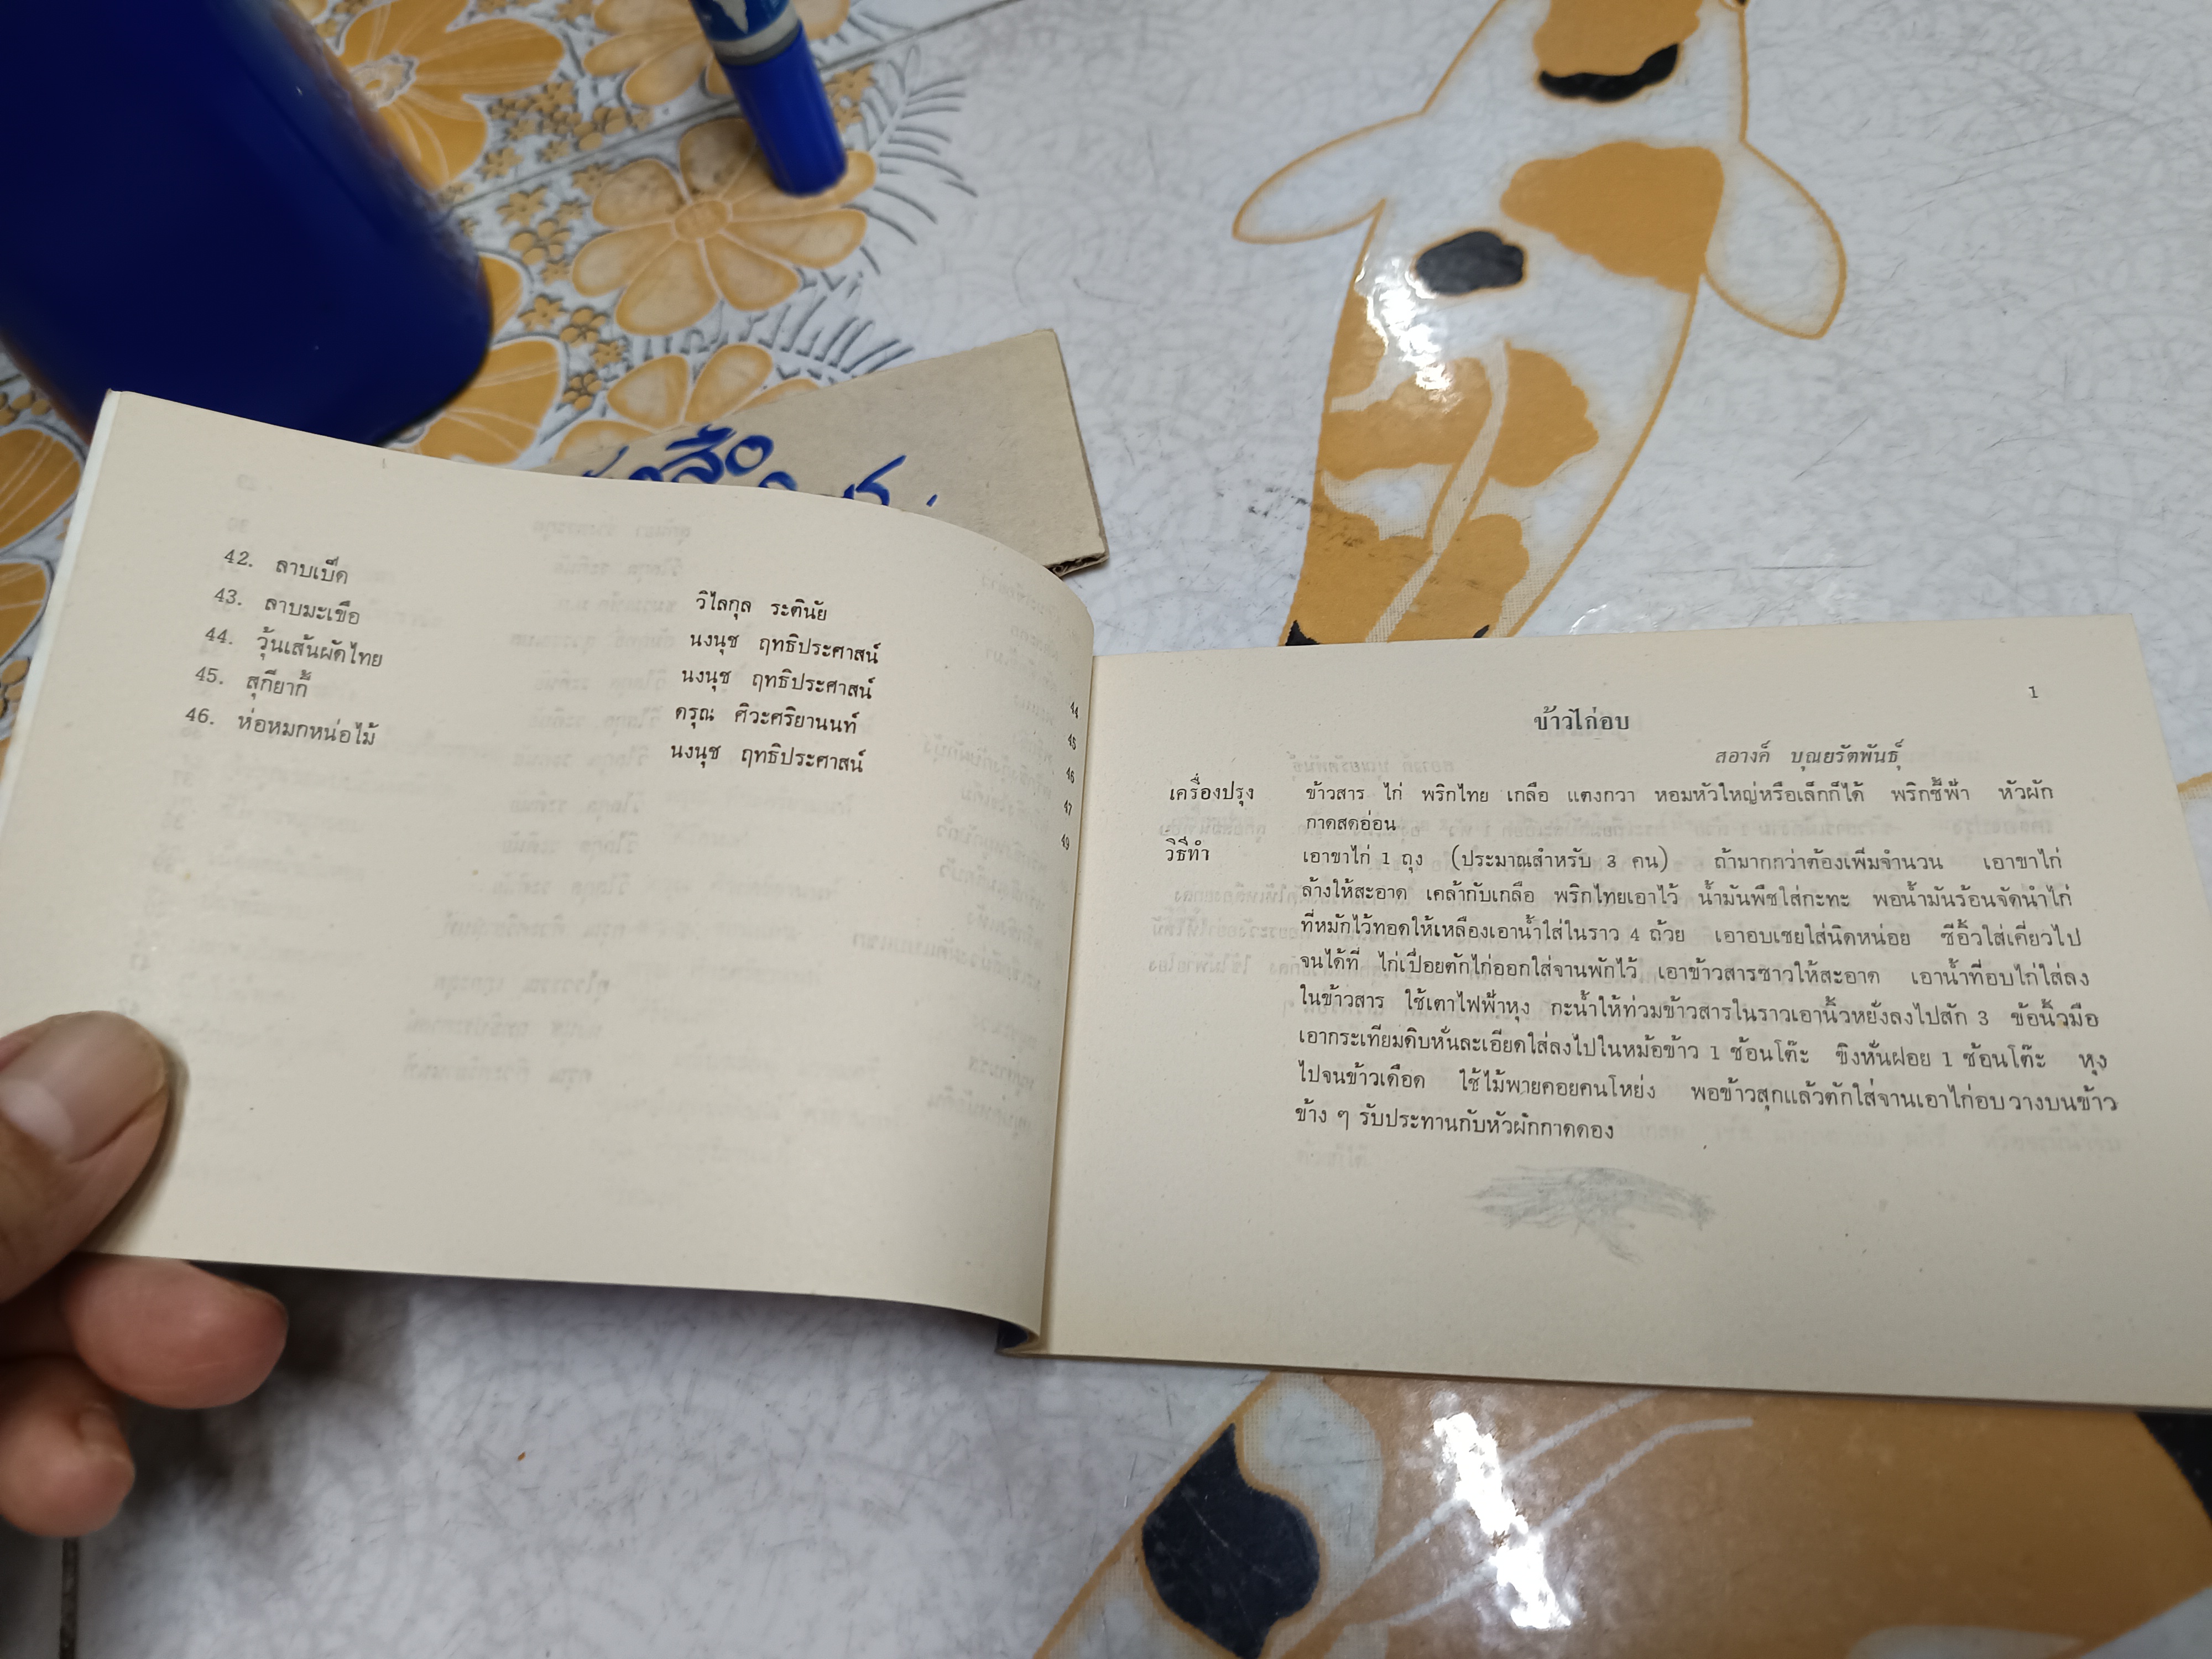 42. ลาบเป็ด วิไลกุล ระตินัย 44
43. ลาบมะเขือ นงนุช ฤทธิประศาสน์ 45
44. วุ้นเส้นผัดไทย นงนุช ฤทธิประศาสน์ 46
45. สุกียากี้ ดรุณ ศิวะศริยานนท์ 47
46. ห่อหมกหน่อไม้ นงนุช ฤทธิประศาสน์ 49
1
ข้าวไก่อบ
สอางค์ บุณยรัตพันธุ์
เครื่องปรุง ข้าวสาร ไก่ พริกไทย เกลือ แตงกวา หอมหัวใหญ่หรือเล็กก็ได้ พริกชี้ฟ้า หัวผัก
กาดสดอ่อน
วิธีทำ เอาขาไก่ 1 ถุง (ประมาณสำหรับ 3 คน) ถ้ามากกว่าต้องเพิ่มจำนวน เอาขาไก่
ล้างให้สะอาด เคล้ากับเกลือ พริกไทยเอาไว้ น้ำมันพืชใส่กะทะ พอน้ำมันร้อนจัดนำไก่
ที่หมักไว้ทอดให้เหลืองเอาน้ำใส่ในราว 4 ถ้วย เอาอบเชยใส่นิดหน่อย ซีอิ้วใส่เคี่ยวไป
จนได้ที่ ไก่เปื่อยตักไก่ออกใส่จานพักไว้ เอาข้าวสารซาวให้สะอาด เอาน้ำที่อบไก่ใส่ลง
ในข้าวสาร ใช้เตาไฟฟ้าหุง กะน้ำให้ท่วมข้าวสารในราวเอานิ้วหยั่งลงไปสัก 3 ข้อนิ้วมือ
เอากระเทียมดิบหั่นละเอียดใส่ลงไปในหม้อข้าว 1 ช้อนโต๊ะ ขิงหั่นฝอย 1 ช้อนโต๊ะ หุง
ไปจนข้าวเดือด ใช้ไม้พายคอยคนโหย่ง พอข้าวสุกแล้วตักใส่จานเอาไก่อบวางบนข้าว
ข้าง ๆ รับประทานกับหัวผักกาดดอง